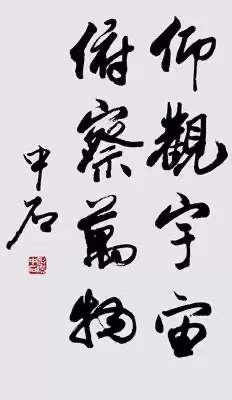 仰觀宇宙
俯察萬物
中石